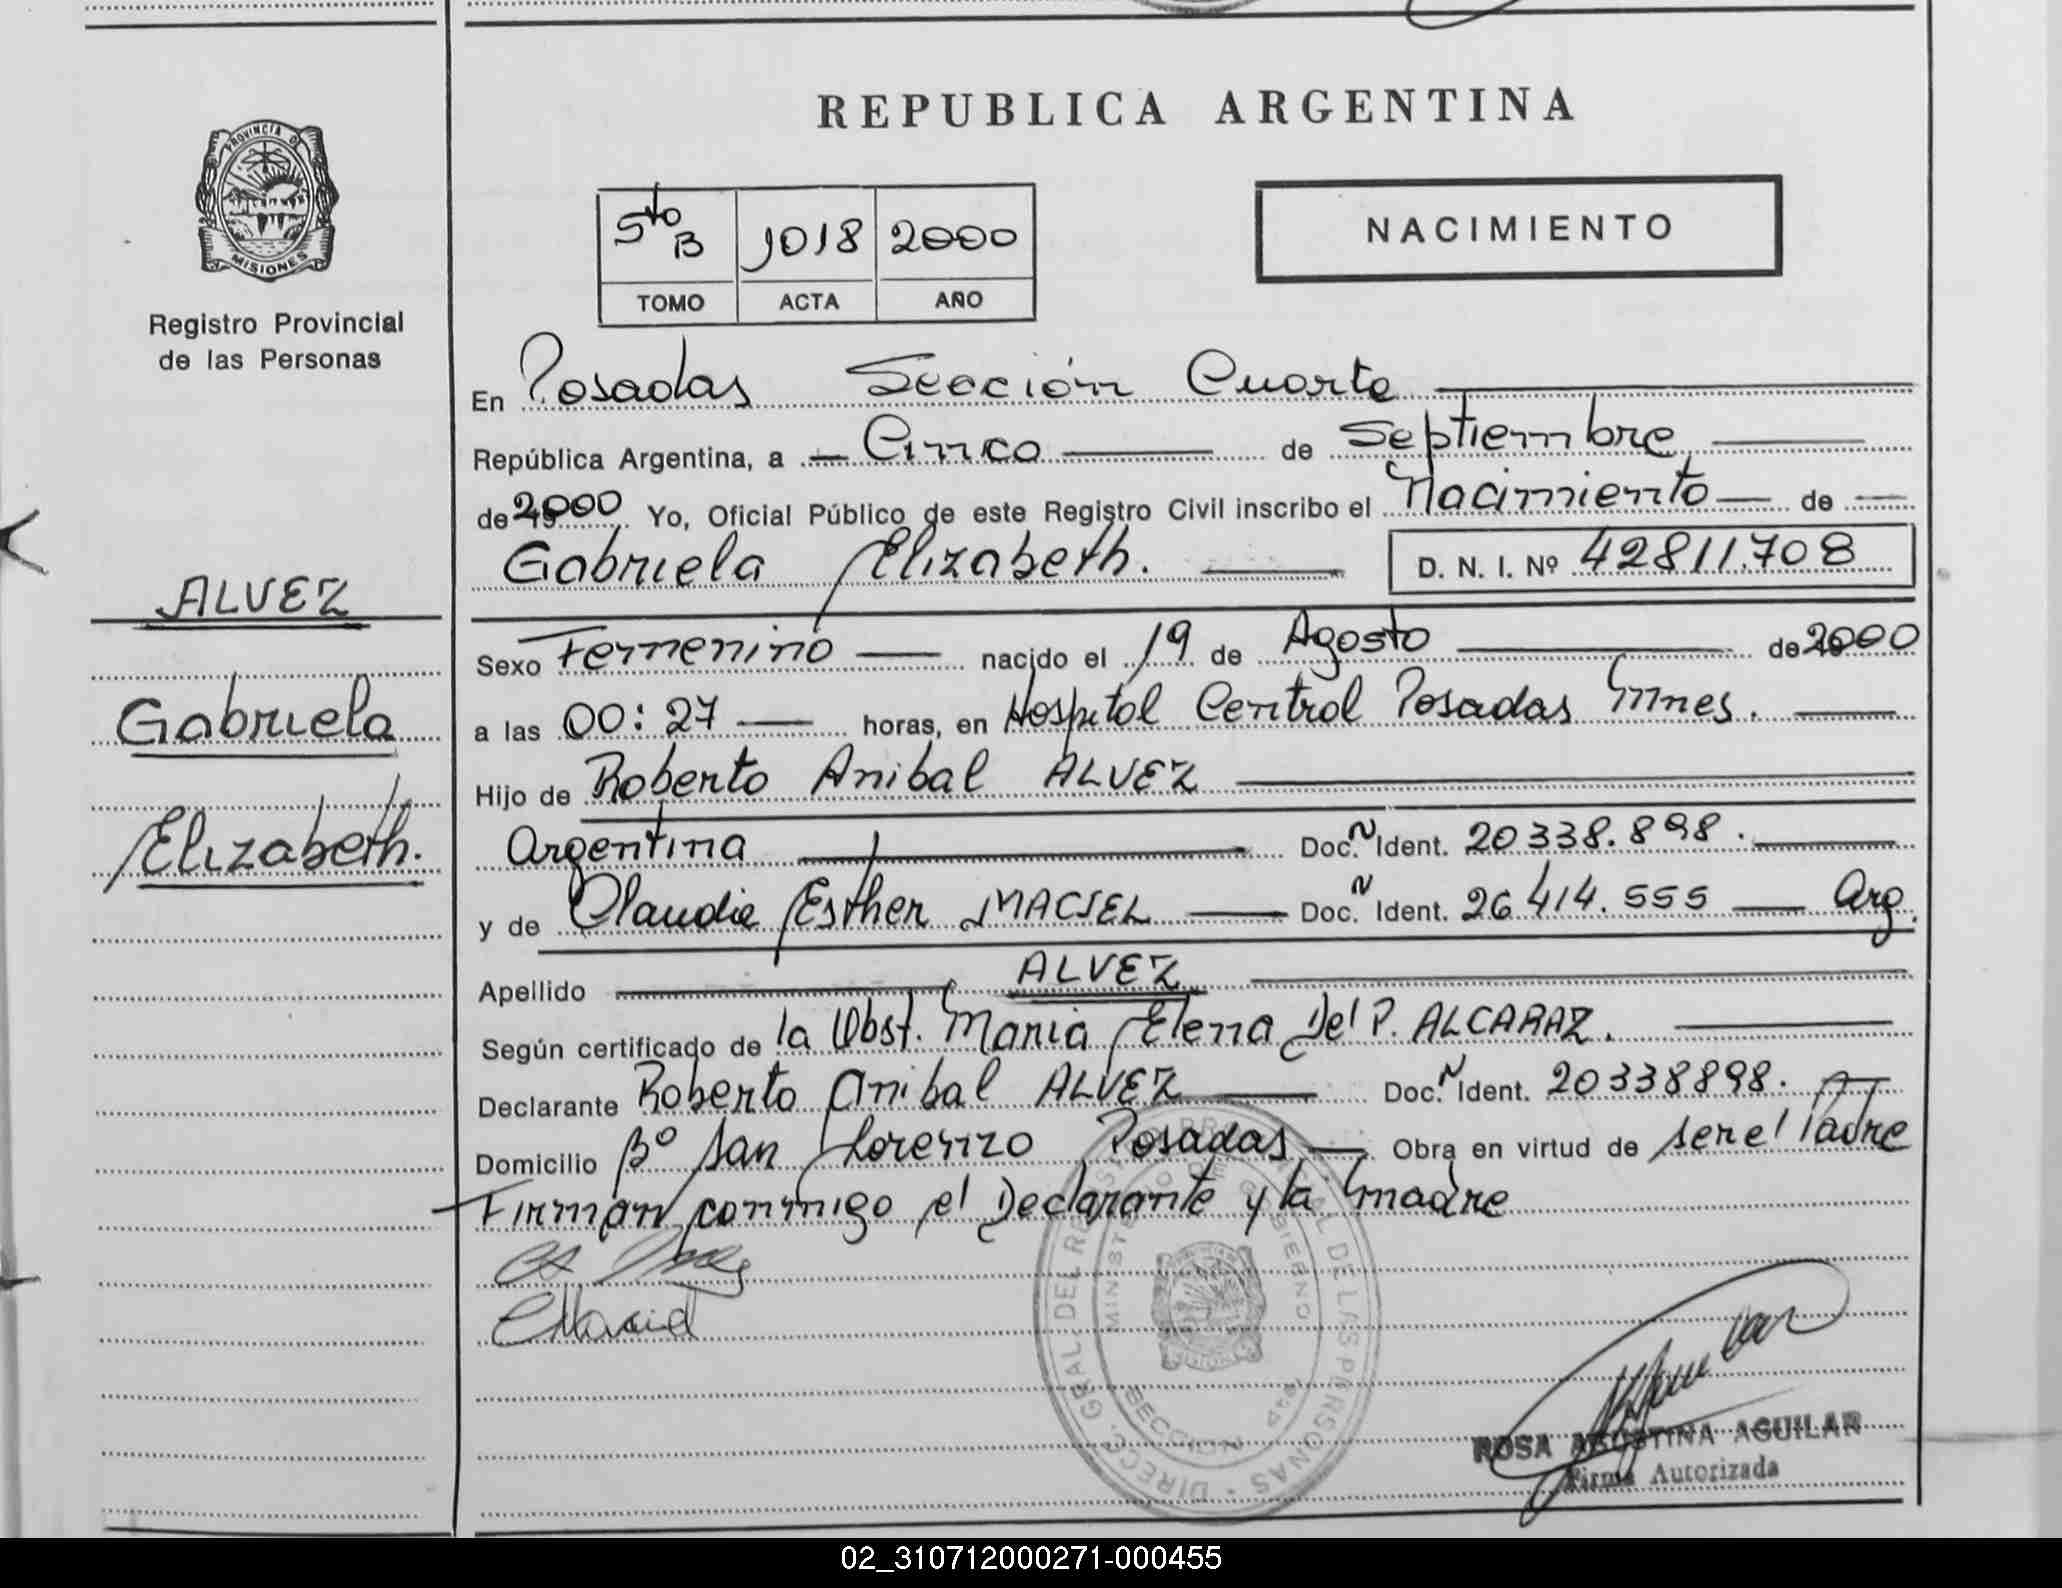 REPUBLICA ARGENTINA
PROVINCIA D
MISIONES
Registro Provincial
de las Personas
5to B 1018 2000
TOMO ACTA AÑO
NACIMIENTO
En Posadas Sección Cuarta
República Argentina, a Cinco de Septiembre
de 2000 Yo, Oficial Público de este Registro Civil inscribo el Nacimiento de
Gabriela Elizabeth. D. N. I. Nº 42811.708
ALVEZ
Gabriela
Elizabeth.
Sexo Femenino nacido el 19 de Agosto de 2000
a las 00:27 horas, en Hospital Central Posadas Mnes.
Hijo de Roberto Anibal ALVEZ
Argentina Doc. Ident. 20338.898.
y de Claudia Esther MACIEL Doc. Ident. 26.414.555 Arg.
Apellido ALVEZ
Según certificado de la Obst. Maria Elena Del P. ALCARAZ.
Declarante Roberto Anibal ALVEZ Doc. Ident. 20338898.
Domicilio Bº San Lorenzo Posadas Obra en virtud de ser el Padre
Firman conmigo el Declarante y la madre
EMaciel
DIRECC. GRAL. DEL REGISTRO PROVINCIAL DE LAS PERSONAS
MINISTERIO DE GOBIERNO
SECCION 4ta
ROSA AGUSTINA AGUILAR
Firma Autorizada
02_310712000271-000455